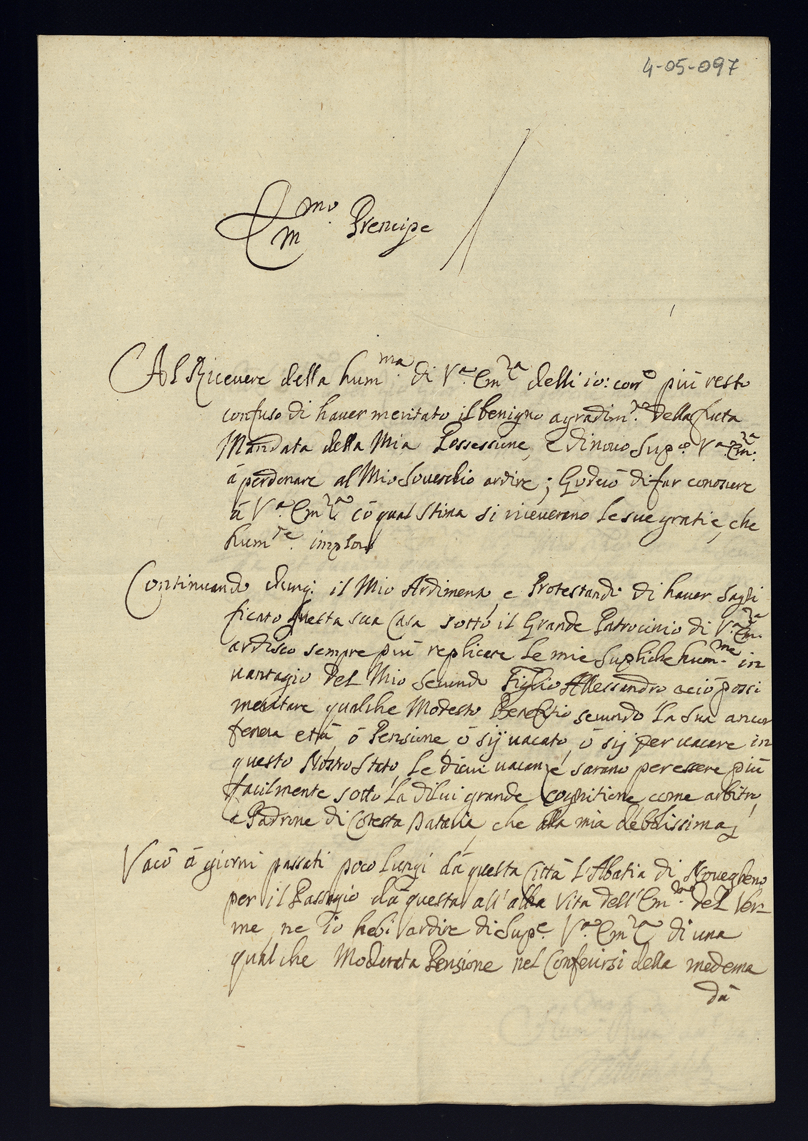 4-05-097
Em.mo Prencipe
Al Ricevere della hum.ma di V.a Em.za delli 10: corr.e più resto
confuso di haver meritato il benigno agradim.to della
Mandata della Mia Possessione, e di novo Sup.co V.a Em.za
à perdonare al Mio Soverchio ardire; di far conoscere
à V.a Em.za cō qual Stima si riceverano le sue gratie, che
hum.te imploro
Continuando il Mio Ardimento e Protestando di haver
questa sua Casa sotto il Grande Patrocinio di V.a Em.za
ardisco sempre più replicare le mie Supliche hum.me in
vantagio del Mio secundo Figlio Allessandro aciò possi
meritare qualche Modesto Beneficio secundo la sua ancor
tenera età ò Pensione ò sij vacato, ò sij per vacare in
questo Nostro Stato, le di cui vacanze sarano per essere più
facilmente sotto la di lui grande cognitione come arbitro,
e Padrone di Cotesta Dataria che alla mia debolissima;
Vacò à giorni passati poco lungi dà questa Città l'Abatia di Novegheno
per il Passagio dà questa all'altra Vita dell'Em.mo del Ver=
me, ne Io hebi ardire di Sup.e V.a Em.za di una
qualche Moderata Pensione nel Conferirsi della medema
dà